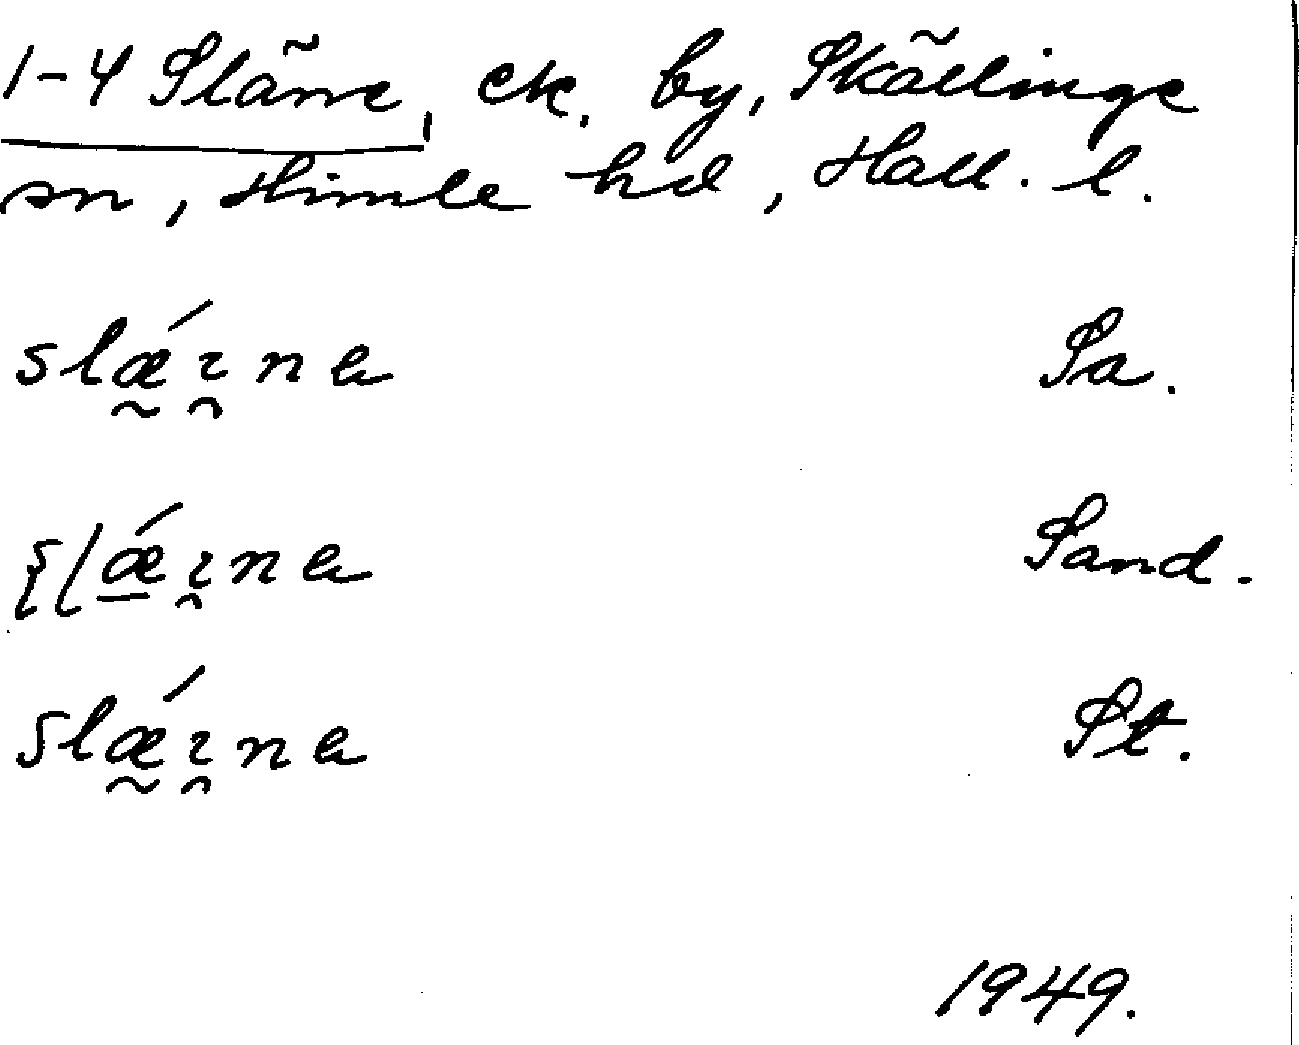 1-4 Släne, ek. by, Skällinge
sn, Himle hd, Hall. l.
slǽ̰ɿ̯na Sa.
ʂɭǽ̱ɿ̯na Sand.
slǽ̰ɿ̯na St.
1949.